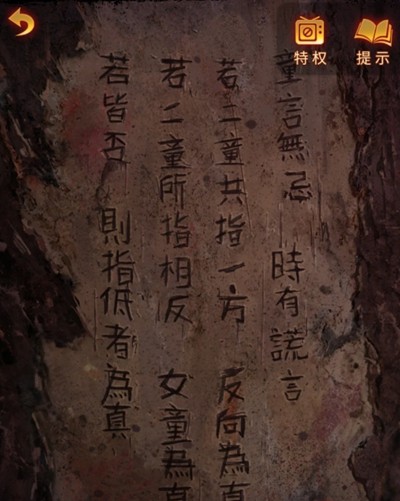 特权
提示
童言無忌 時有謊言
若二童共指一方 反向為真
若二童所指相反 女童為真
若皆否 則指低者為真